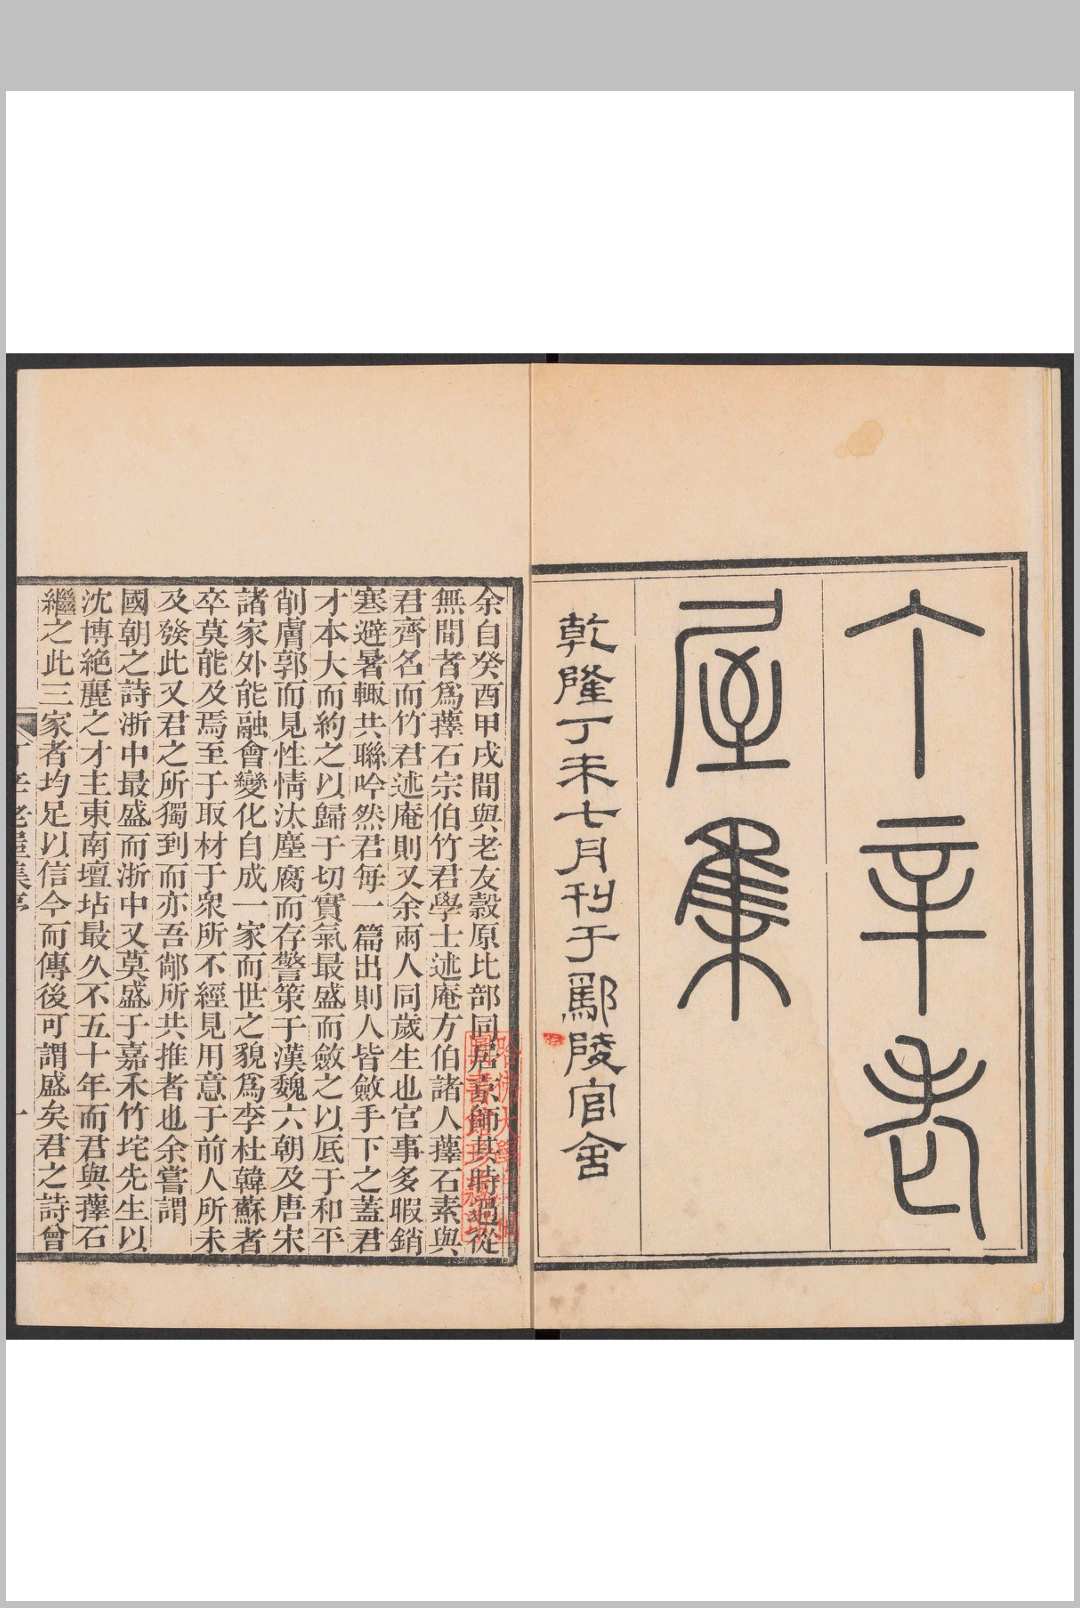 丁辛老
屋集
乾隆丁未七月刊于鄢陵官舍
余自癸酉甲戌間與老友榖原比部同居京師其時過從
無間者爲蘀石宗伯竹君學士述庵方伯諸人蘀石素與
君齊名而竹君述庵則又余兩人同歲生也官事多暇銷
寒避暑輙共聯吟然君每一篇出則人皆斂手下之蓋君
才本大而約之以歸于切實氣最盛而斂之以底于和平
削膚郭而見性情汰塵腐而存警策于漢魏六朝及唐宋
諸家外能融會變化自成一家而世之貌爲李杜韓蘇者
卒莫能及焉至于取材于衆所不經見用意于前人所未
及發此又君之所獨到而亦吾鄰所共推者也余嘗謂
國朝之詩浙中最盛而浙中又莫盛于嘉禾竹垞先生以
沈博絶麗之才主東南壇坫最久不五十年而君與蘀石
繼之此三家者均足以信今而傳後可謂盛矣君之詩曾
丁辛老屋集序
一